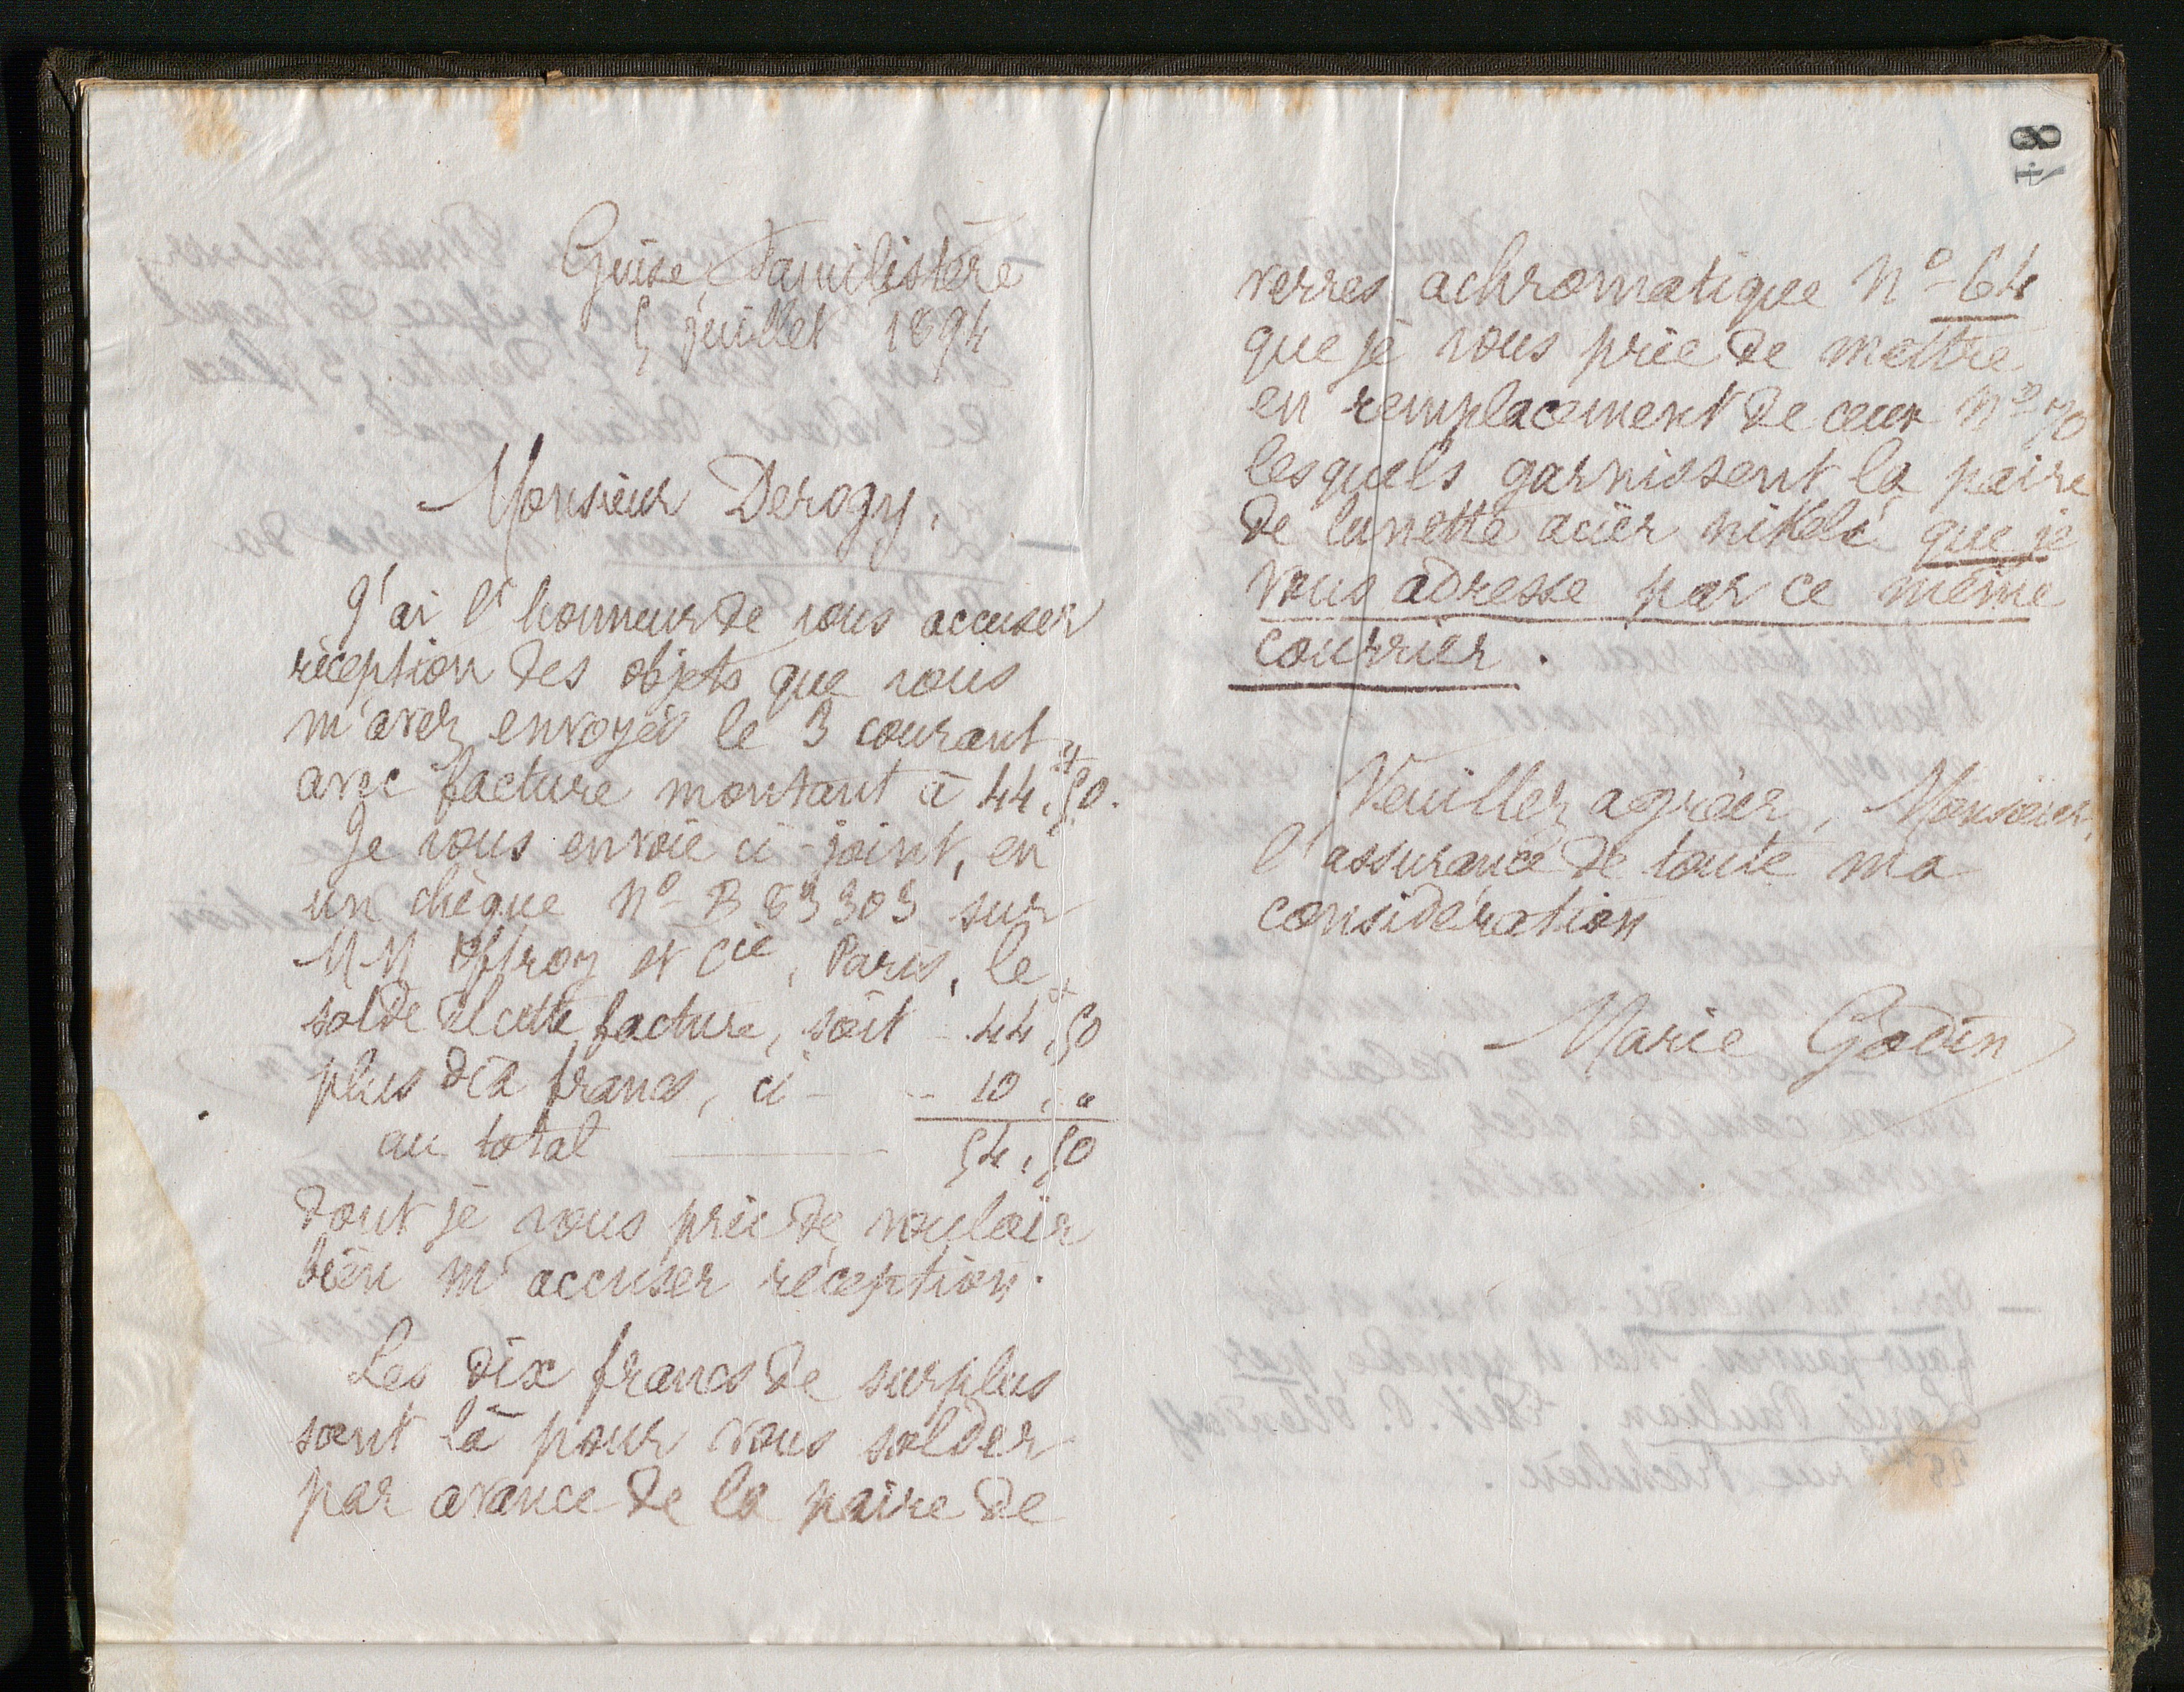 48
Guise, Familistère
5 juillet 1894
Monsieur Derogy,
J'ai l'honneur de vous accuser
réception des objets que vous
m'avez envoyés le 3 courant
avec facture montant à 44f,50.
Je vous envoie ci-joint, en
un chèque No B 83303 sur
MM Offroy et Cie, Paris, le
solde de cette facture, soit 44f,50
plus dix francs, ci - 10, "
au total 54,50
dont je vous prie de vouloir
bien m'accuser réception.
Les dix francs de surplus
sont là pour vous solder
par avance de la paire de
verres achromatique No 64
que je vous prie de mettre
en remplacement de ceux No 70
lesquels garnissent la paire
de lunette acier nikelé que je
vous adresse par ce même
courrier.
Veuillez agréer, Monsieur,
l'assurance de toute ma
considération
Marie Godin